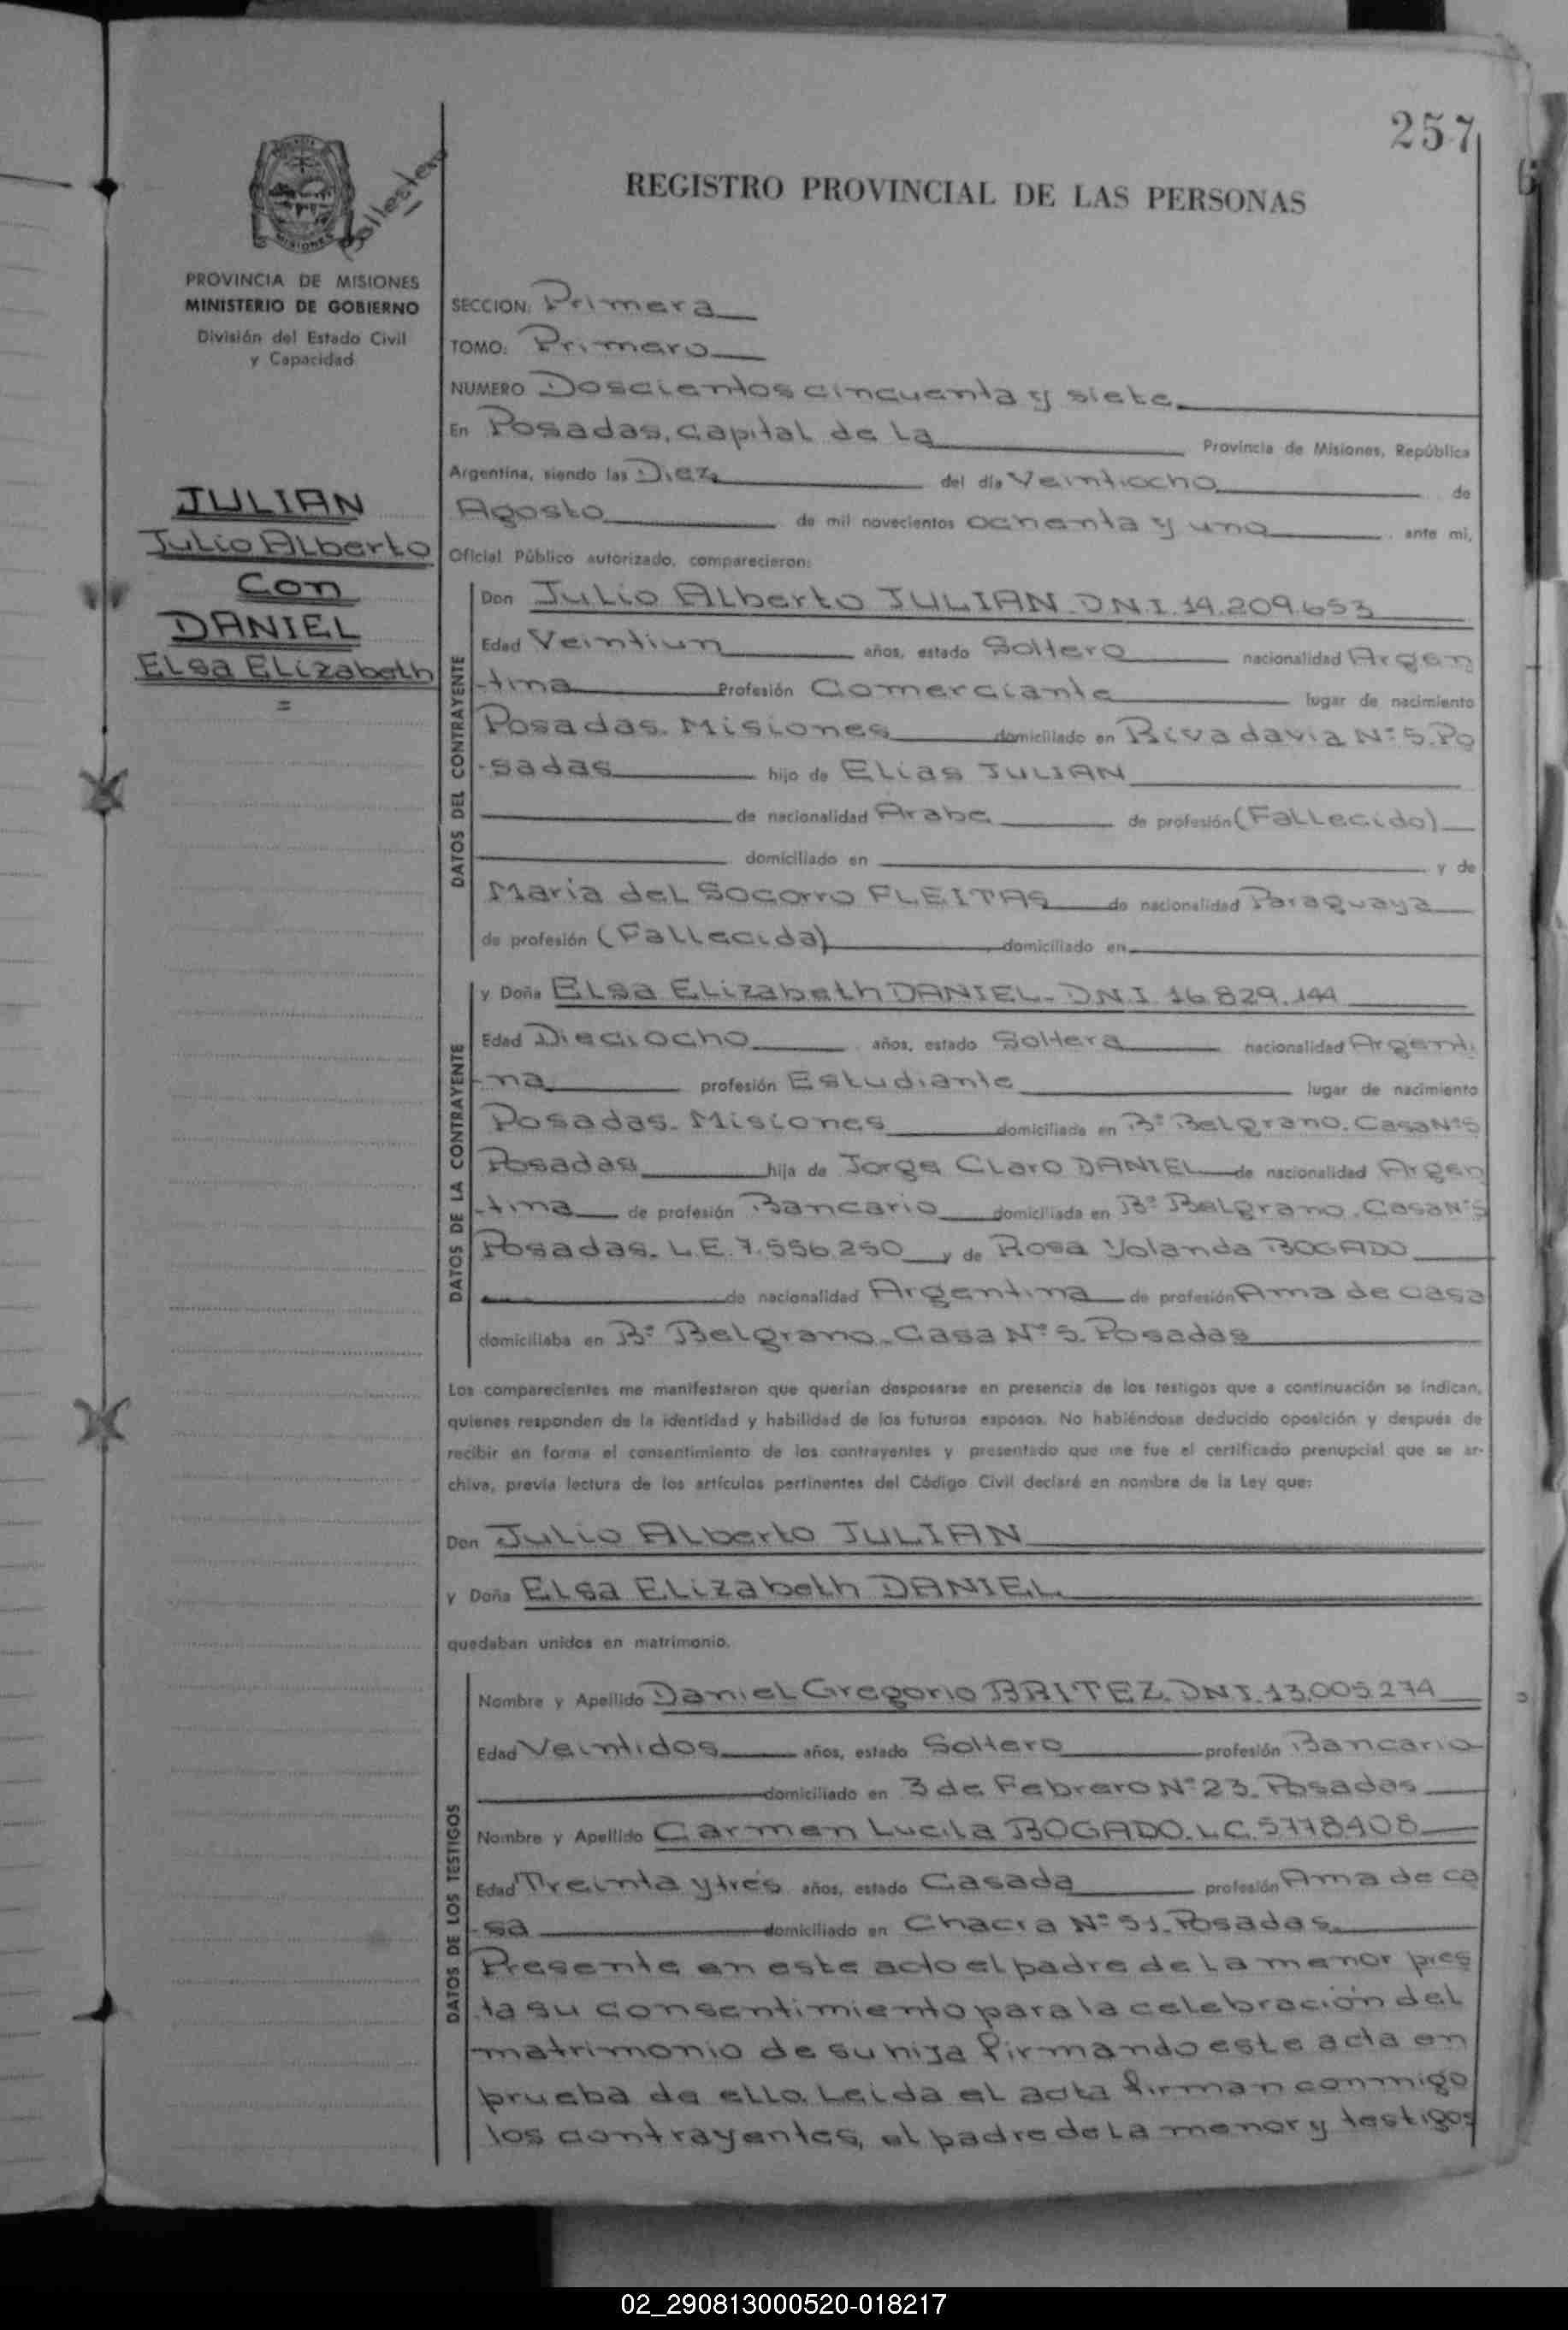 257
REGISTRO PROVINCIAL DE LAS PERSONAS
MISIONES
PROVINCIA DE MISIONES
MINISTERIO DE GOBIERNO
División del Estado Civil
y Capacidad
JULIAN
Julio Alberto
Con
DANIEL
Elsa Elizabeth
=
SECCION: Primera
TOMO: Primero
NUMERO Doscientos cincuenta y siete
En Posadas, capital de la Provincia de Misiones, República
Argentina, siendo las Diez del día Veintiocho de
Agosto de mil novecientos ochenta y uno ante mi,
Oficial Público autorizado, comparecieron:
DATOS DEL CONTRAYENTE
Don Julio Alberto JULIAN. D.N.I. 14.209.653
Edad Veintiun años, estado Soltero nacionalidad Argen
-tina Profesión Comerciante lugar de nacimiento
Posadas. Misiones domiciliado en Rivadavia N° 5. Po
-sadas hijo de Elias JULIAN
de nacionalidad Arabe de profesión (Fallecido)
domiciliado en y de
Maria del Socorro FLEITAS de nacionalidad Paraguaya
de profesión (Fallecida) domiciliado en
DATOS DE LA CONTRAYENTE
y Doña Elsa Elizabeth DANIEL. D.N.I. 16.829.144
Edad Dieciocho años, estado Soltera nacionalidad Argenti
-na profesión Estudiante lugar de nacimiento
Posadas. Misiones domiciliada en B° Belgrano. Casa N° 5
Posadas hija de Jorge Claro DANIEL de nacionalidad Argen
-tina de profesión Bancario domiciliada en B° Belgrano. Casa N° 5
Posadas. L.E. 7.556.250 y de Rosa Yolanda BOGADO
de nacionalidad Argentina de profesión Ama de casa
domiciliaba en B° Belgrano. Casa N° 5. Posadas
Los comparecientes me manifestaron que querían desposarse en presencia de los testigos que a continuación se indican,
quienes responden de la identidad y habilidad de los futuros esposos. No habiéndose deducido oposición y después de
recibir en forma el consentimiento de los contrayentes y presentado que me fue el certificado prenupcial que se ar-
chiva, previa lectura de los artículos pertinentes del Código Civil declaré en nombre de la Ley que:
Don Julio Alberto JULIAN
y Doña Elsa Elizabeth DANIEL
quedaban unidos en matrimonio.
DATOS DE LOS TESTIGOS
Nombre y Apellido Daniel Gregorio BRITEZ. DNI. 13.005.274
Edad Veintidos años, estado Soltero profesión Bancario
domiciliado en 3 de Febrero N° 23. Posadas
Nombre y Apellido Carmen Lucila BOGADO. L.C. 5778408
Edad Treinta y tres años, estado Casada profesión Ama de ca
-sa domiciliado en Chacra N° 51. Posadas.
Presente en este acto el padre de la menor pres
ta su consentimiento para la celebración del
matrimonio de su hija firmando este acta en
prueba de ello. Leida el acta firman conmigo
los contrayentes, el padre de la menor y testigos
02_290813000520-018217